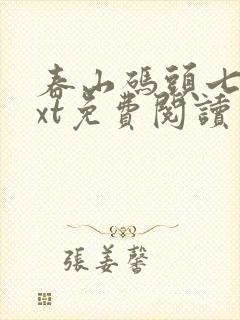 春山碼頭七
xt免費閱讀
張姜馨